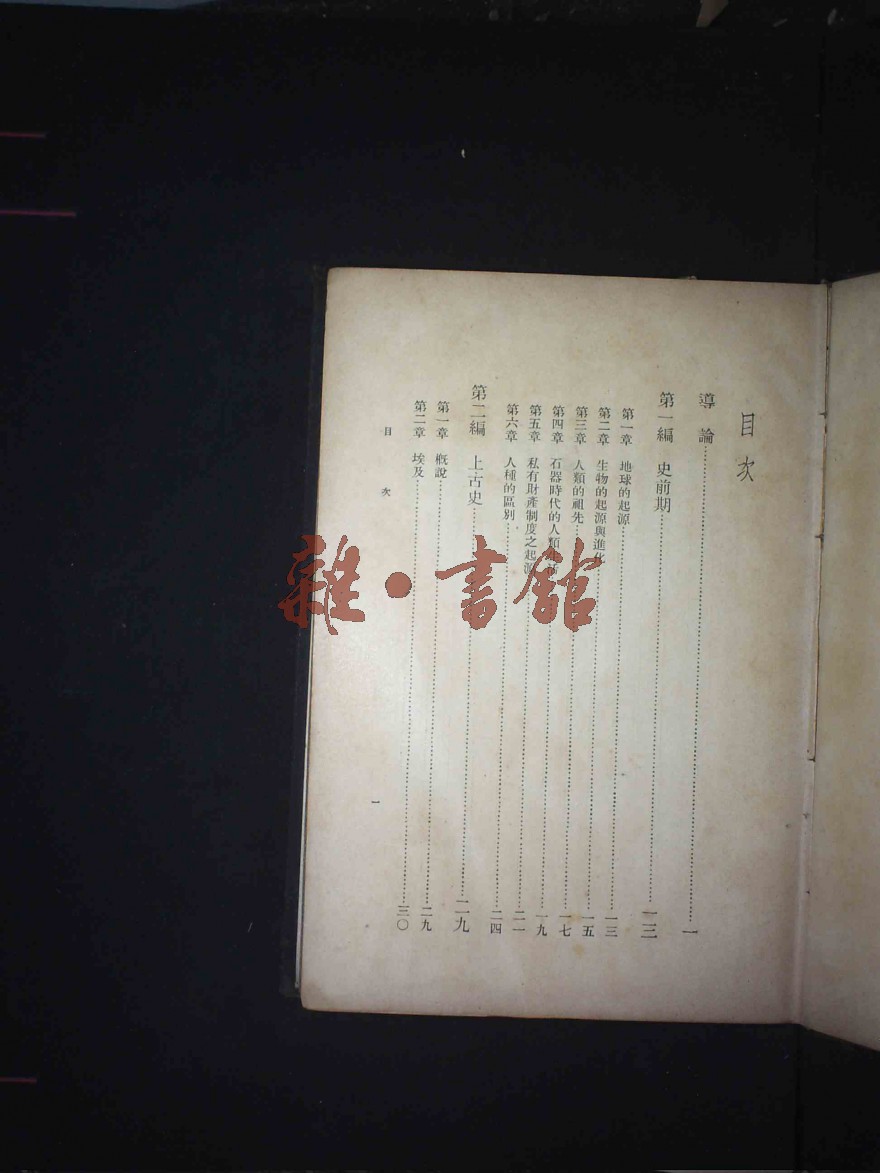 目次
導論……一
第一編 史前期……一三
第一章 地球的起源……一三
第二章 生物的起源與進化……一五
第三章 人類的祖先……一七
第四章 石器時代的人類生活……一九
第五章 私有財產制度之起源……二一
第六章 人種的區別……二四
第二編 上古史……二九
第一章 概說……二九
第二章 埃及……三〇
目次
一
雜·書館